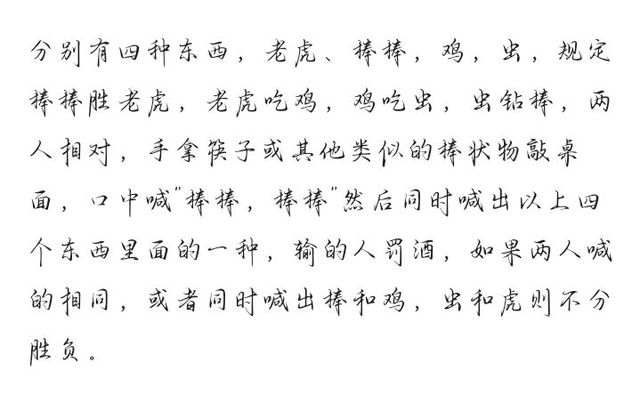 分别有四种东西，老虎、棒棒，鸡，虫，规定
棒棒胜老虎，老虎吃鸡，鸡吃虫，虫钻棒，两
人相对，手拿筷子或其他类似的棒状物敲桌
面，口中喊"棒棒，棒棒"然后同时喊出以上四
个东西里面的一种，输的人罚酒，如果两人喊
的相同，或者同时喊出棒和鸡，虫和虎则不分
胜负。